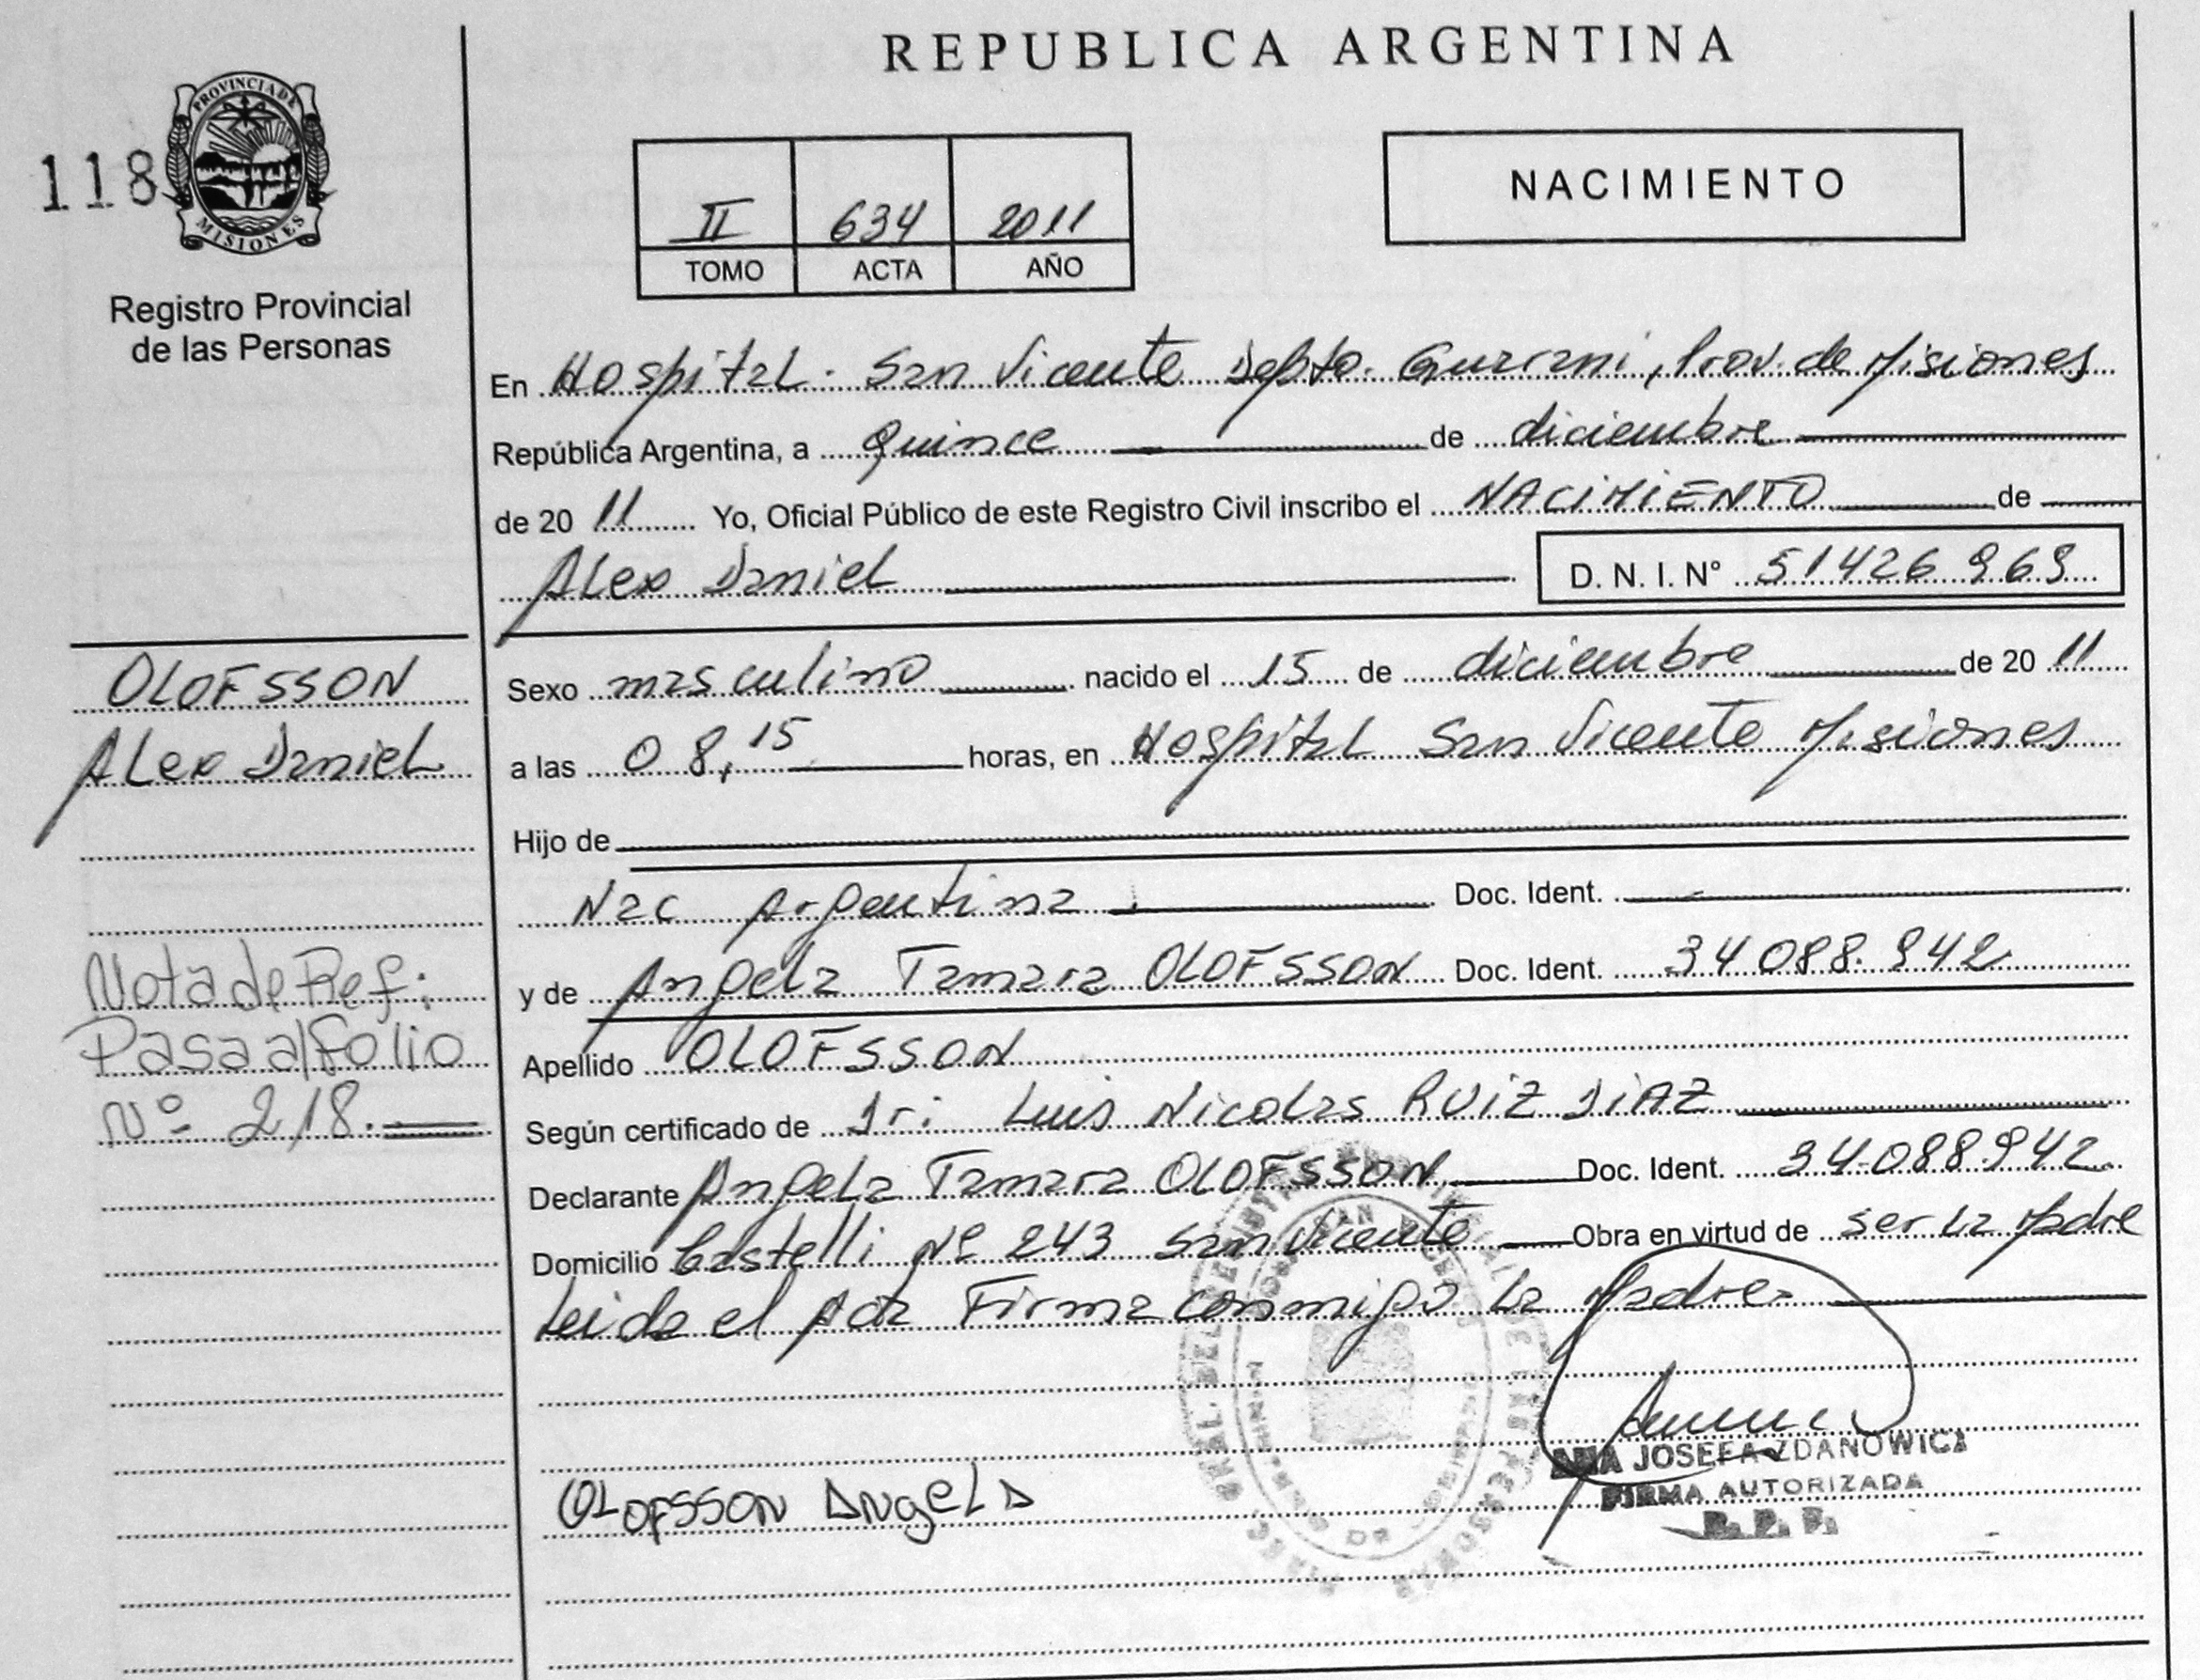 REPUBLICA ARGENTINA
118
PROVINCIA DE
MISIONES
Registro Provincial
de las Personas
II 634 2011
TOMO ACTA AÑO
NACIMIENTO
En Hospital. San Vicente Depto. Guarani, Prov. de Misiones
República Argentina, a Quince de diciembre
de 20 11 Yo, Oficial Público de este Registro Civil inscribo el NACIMIENTO de
Alex Daniel D. N. I. N° 51426969
OLOFSSON
Alex Daniel
Sexo masculino nacido el 15 de diciembre de 20 11
a las 08,15 horas, en Hospital San Vicente Misiones
Hijo de
Nac Argentina Doc. Ident.
y de Angela Tamara OLOFSSON Doc. Ident. 34088.942
Apellido OLOFSSON
Según certificado de Dr: Luis Nicolas RUIZ DIAZ
Declarante Angela Tamara OLOFSSON Doc. Ident. 34.088.942
Domicilio Castelli Nº 243 San Vicente Obra en virtud de ser la Madre
Leida el Acta Firma conmigo la Madre.
Nota de Ref:
Pasa a/folio
Nº 218.
OLOFSSON ANgeLA
ANA JOSEFA ZDANOWICZ
FIRMA AUTORIZADA
R. P. P.